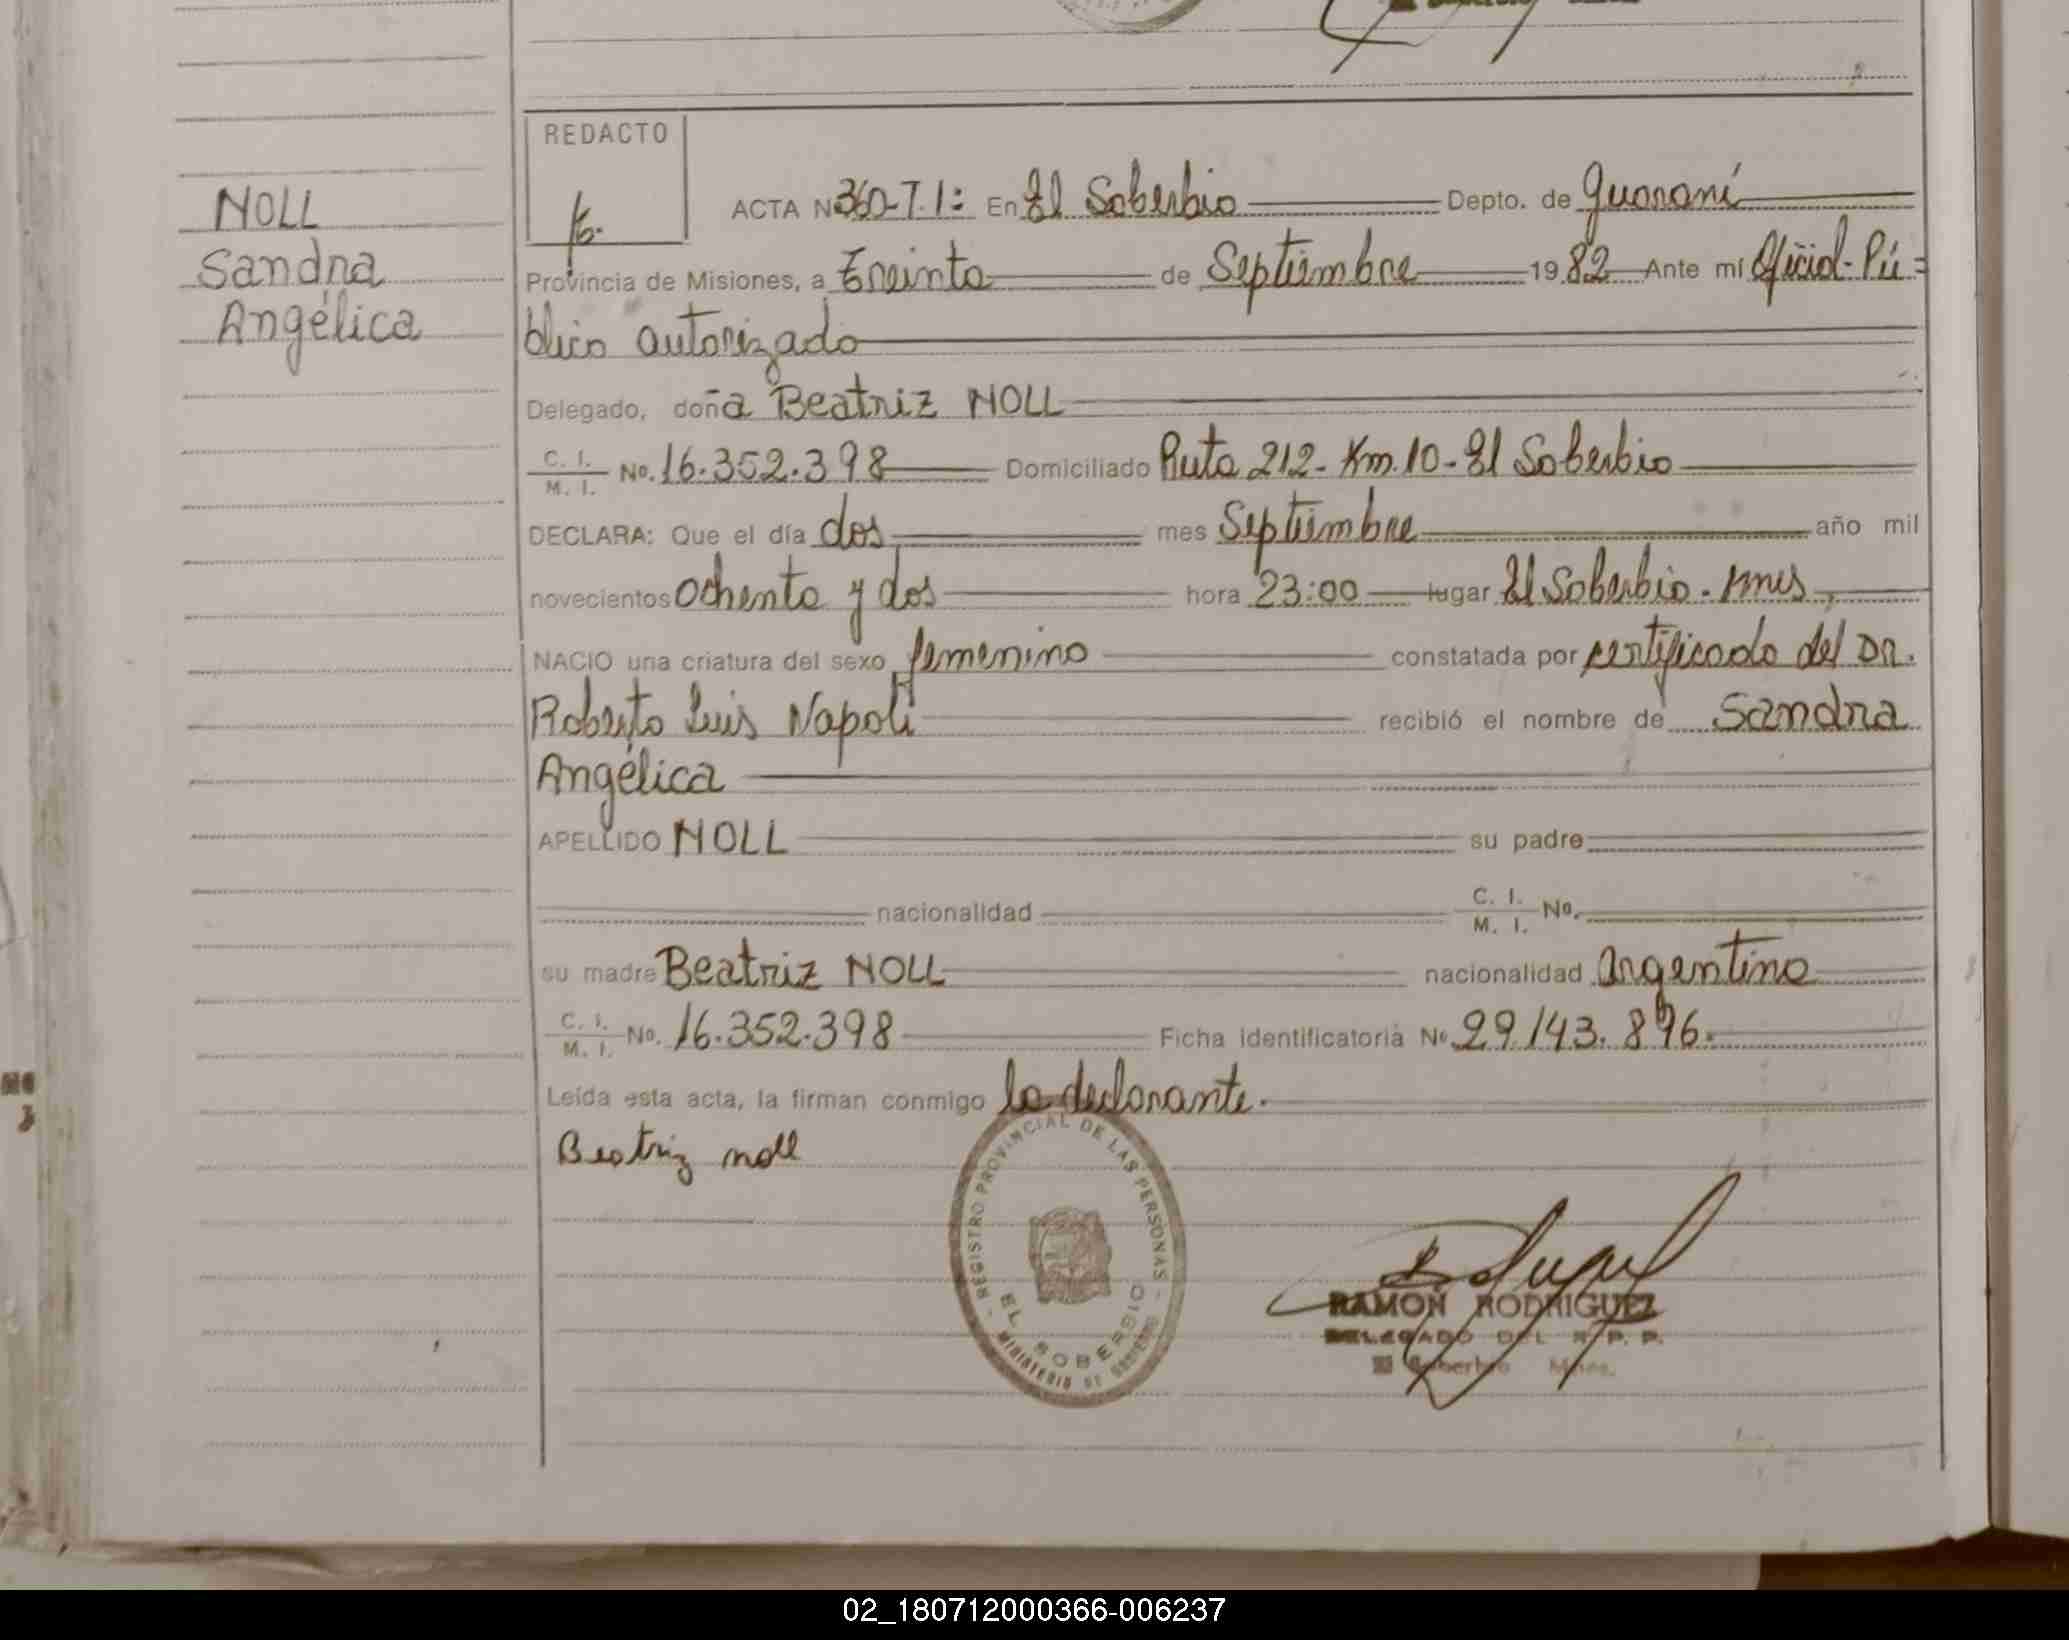 REDACTO
NOLL
Sandra
Angélica
ACTA Nº 360-T.I: En El Soberbio Depto. de Guaraní
Provincia de Misiones, a Treinta de Septiembre 1982 Ante mí Oficial Pú=
blico autorizado
Delegado, doña Beatriz NOLL
C. I. / M. I. No. 16.352.398 Domiciliado Ruta 212- Km.10-El Soberbio
DECLARA: Que el día dos mes Septiembre año mil
novecientos ochenta y dos hora 23:00 lugar El Soberbio. Mnes,
NACIO una criatura del sexo femenino constatada por certificado del Dr.
Roberto Luis Napoli recibió el nombre de Sandra
Angélica
APELLIDO NOLL su padre
nacionalidad C. I. / M. I. No.
su madre Beatriz NOLL nacionalidad argentina
C. I. / M. I. No. 16.352.398 Ficha identificatoria No 29.143.896.
Leída esta acta, la firman conmigo la declarante.
Beatriz noll
- REGISTRO PROVINCIAL DE LAS PERSONAS -
EL SOBERBIO
MINISTERIO DE GOBIERNO
RAMON RODRIGUEZ
DELEGADO DEL R. P. P.
El Soberbio Mnes.
02_180712000366-006237